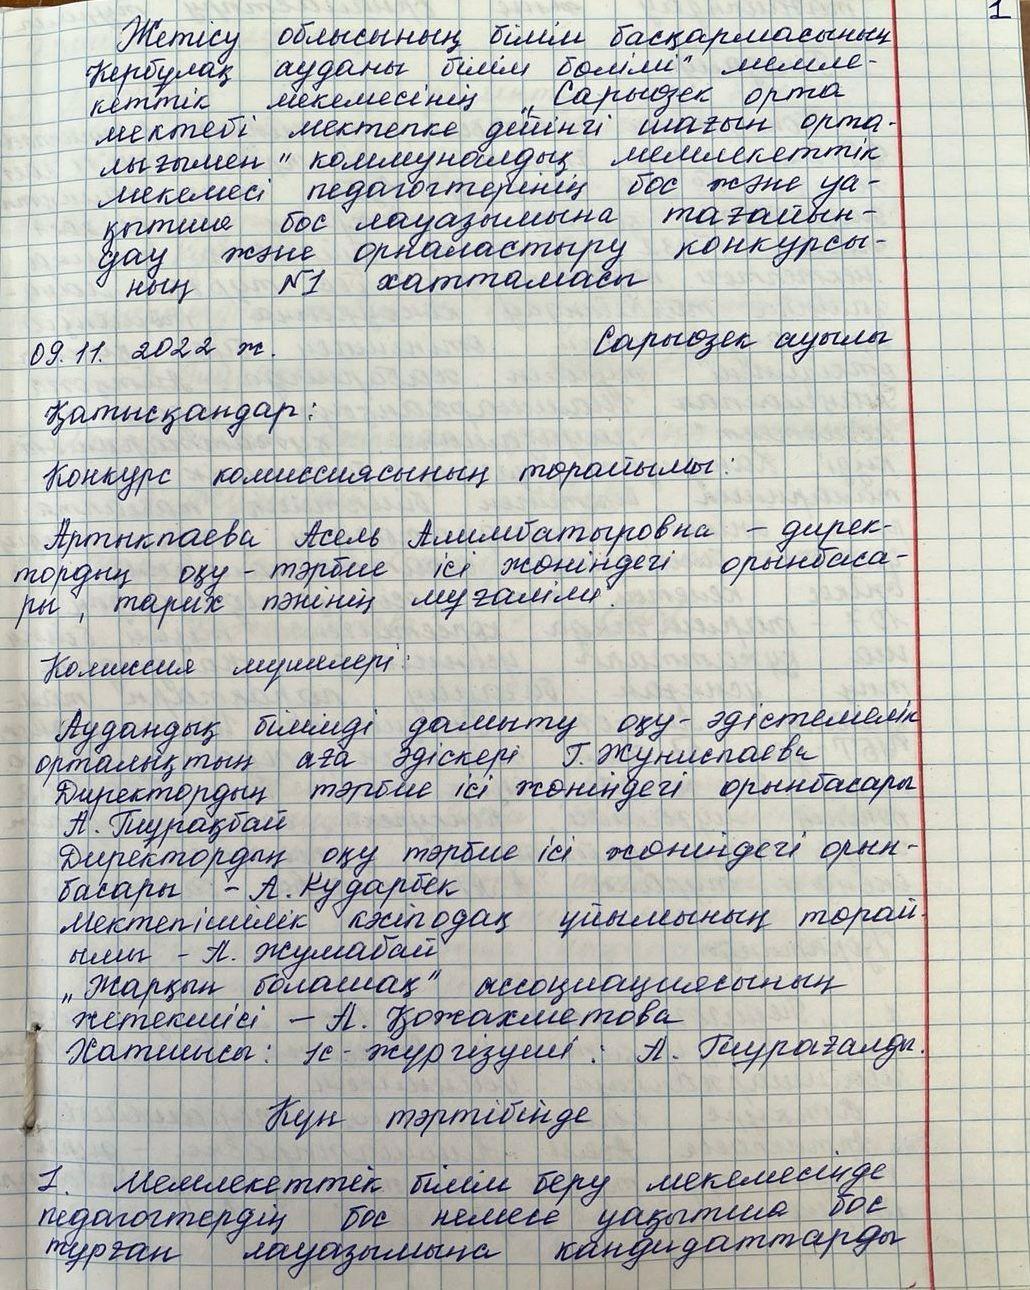 1
Жетісу облысының білім басқармасының
Кербұлақ ауданы білім бөлімі" мемле-
кеттік мекемесінің „Сарыөзек орта
мектебі мектепке дейінгі шағын орта-
лығымен" коммуналдық мемлекеттік
мекемесі педагогтерінің бос және уа-
қытша бос лауазымына тағайын-
дау және орналастыру конкурсы-
ның №1 хаттамасы
09.11.2022 ж. Сарыөзек ауылы
Қатысқандар:
Конкурс комиссиясының төрайымы:
Артыкпаева Асель Алимбатыровна – дирек-
тордың оқу-тәрбие ісі жөніндегі орынбаса-
ры, тарих пәнінің мұғалімі.
Комиссия мүшелері:
Аудандық білімді дамыту оқу-әдістемелік
орталықтың аға әдіскері Г. Жуниспаева
Директордың тәрбие ісі жөніндегі орынбасары
А. Тұрақбай
Директордың оқу тәрбие ісі жөніндегі орын-
басары – А. Құдарбек
Мектепішілік кәсіподақ ұйымының төрай-
ымы – А. Жумабай
„Жарқын болашақ" ассоциациясының
жетекшісі – А. Қожахметова
Хатшысы: іс-жүргізуші: А. Тұрағалды.
Күн тәртібінде
1. Мемлекеттік білім беру мекемесінде
педагогтердің бос немесе уақытша бос
тұрған лауазымына кандидаттарды